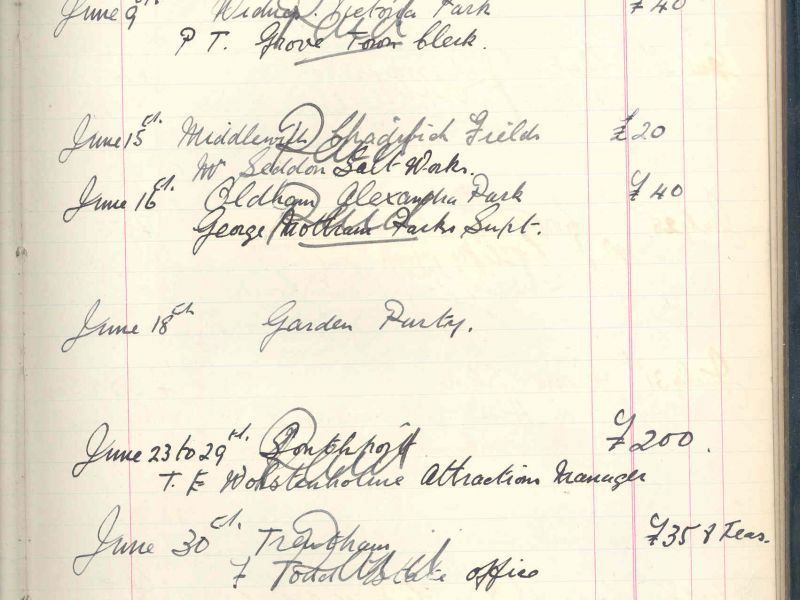 June 9th Widnes. Victoria Park £40
P T. Grove Town Clerk.
June 15th. Middlewich Fields £20
Mr Seddon Salt Works.
June 16th. Oldham Alexandra Park £40
George Mottram Parks Supt.
June 18th Garden Party.
June 23 to 29th. Southport £200.
T. E Wolstenholme Attraction Manager
June 30th. Trentham £35 & Teas.
F Todd Estate office
Paid
Paid
Paid
Paid
Paid